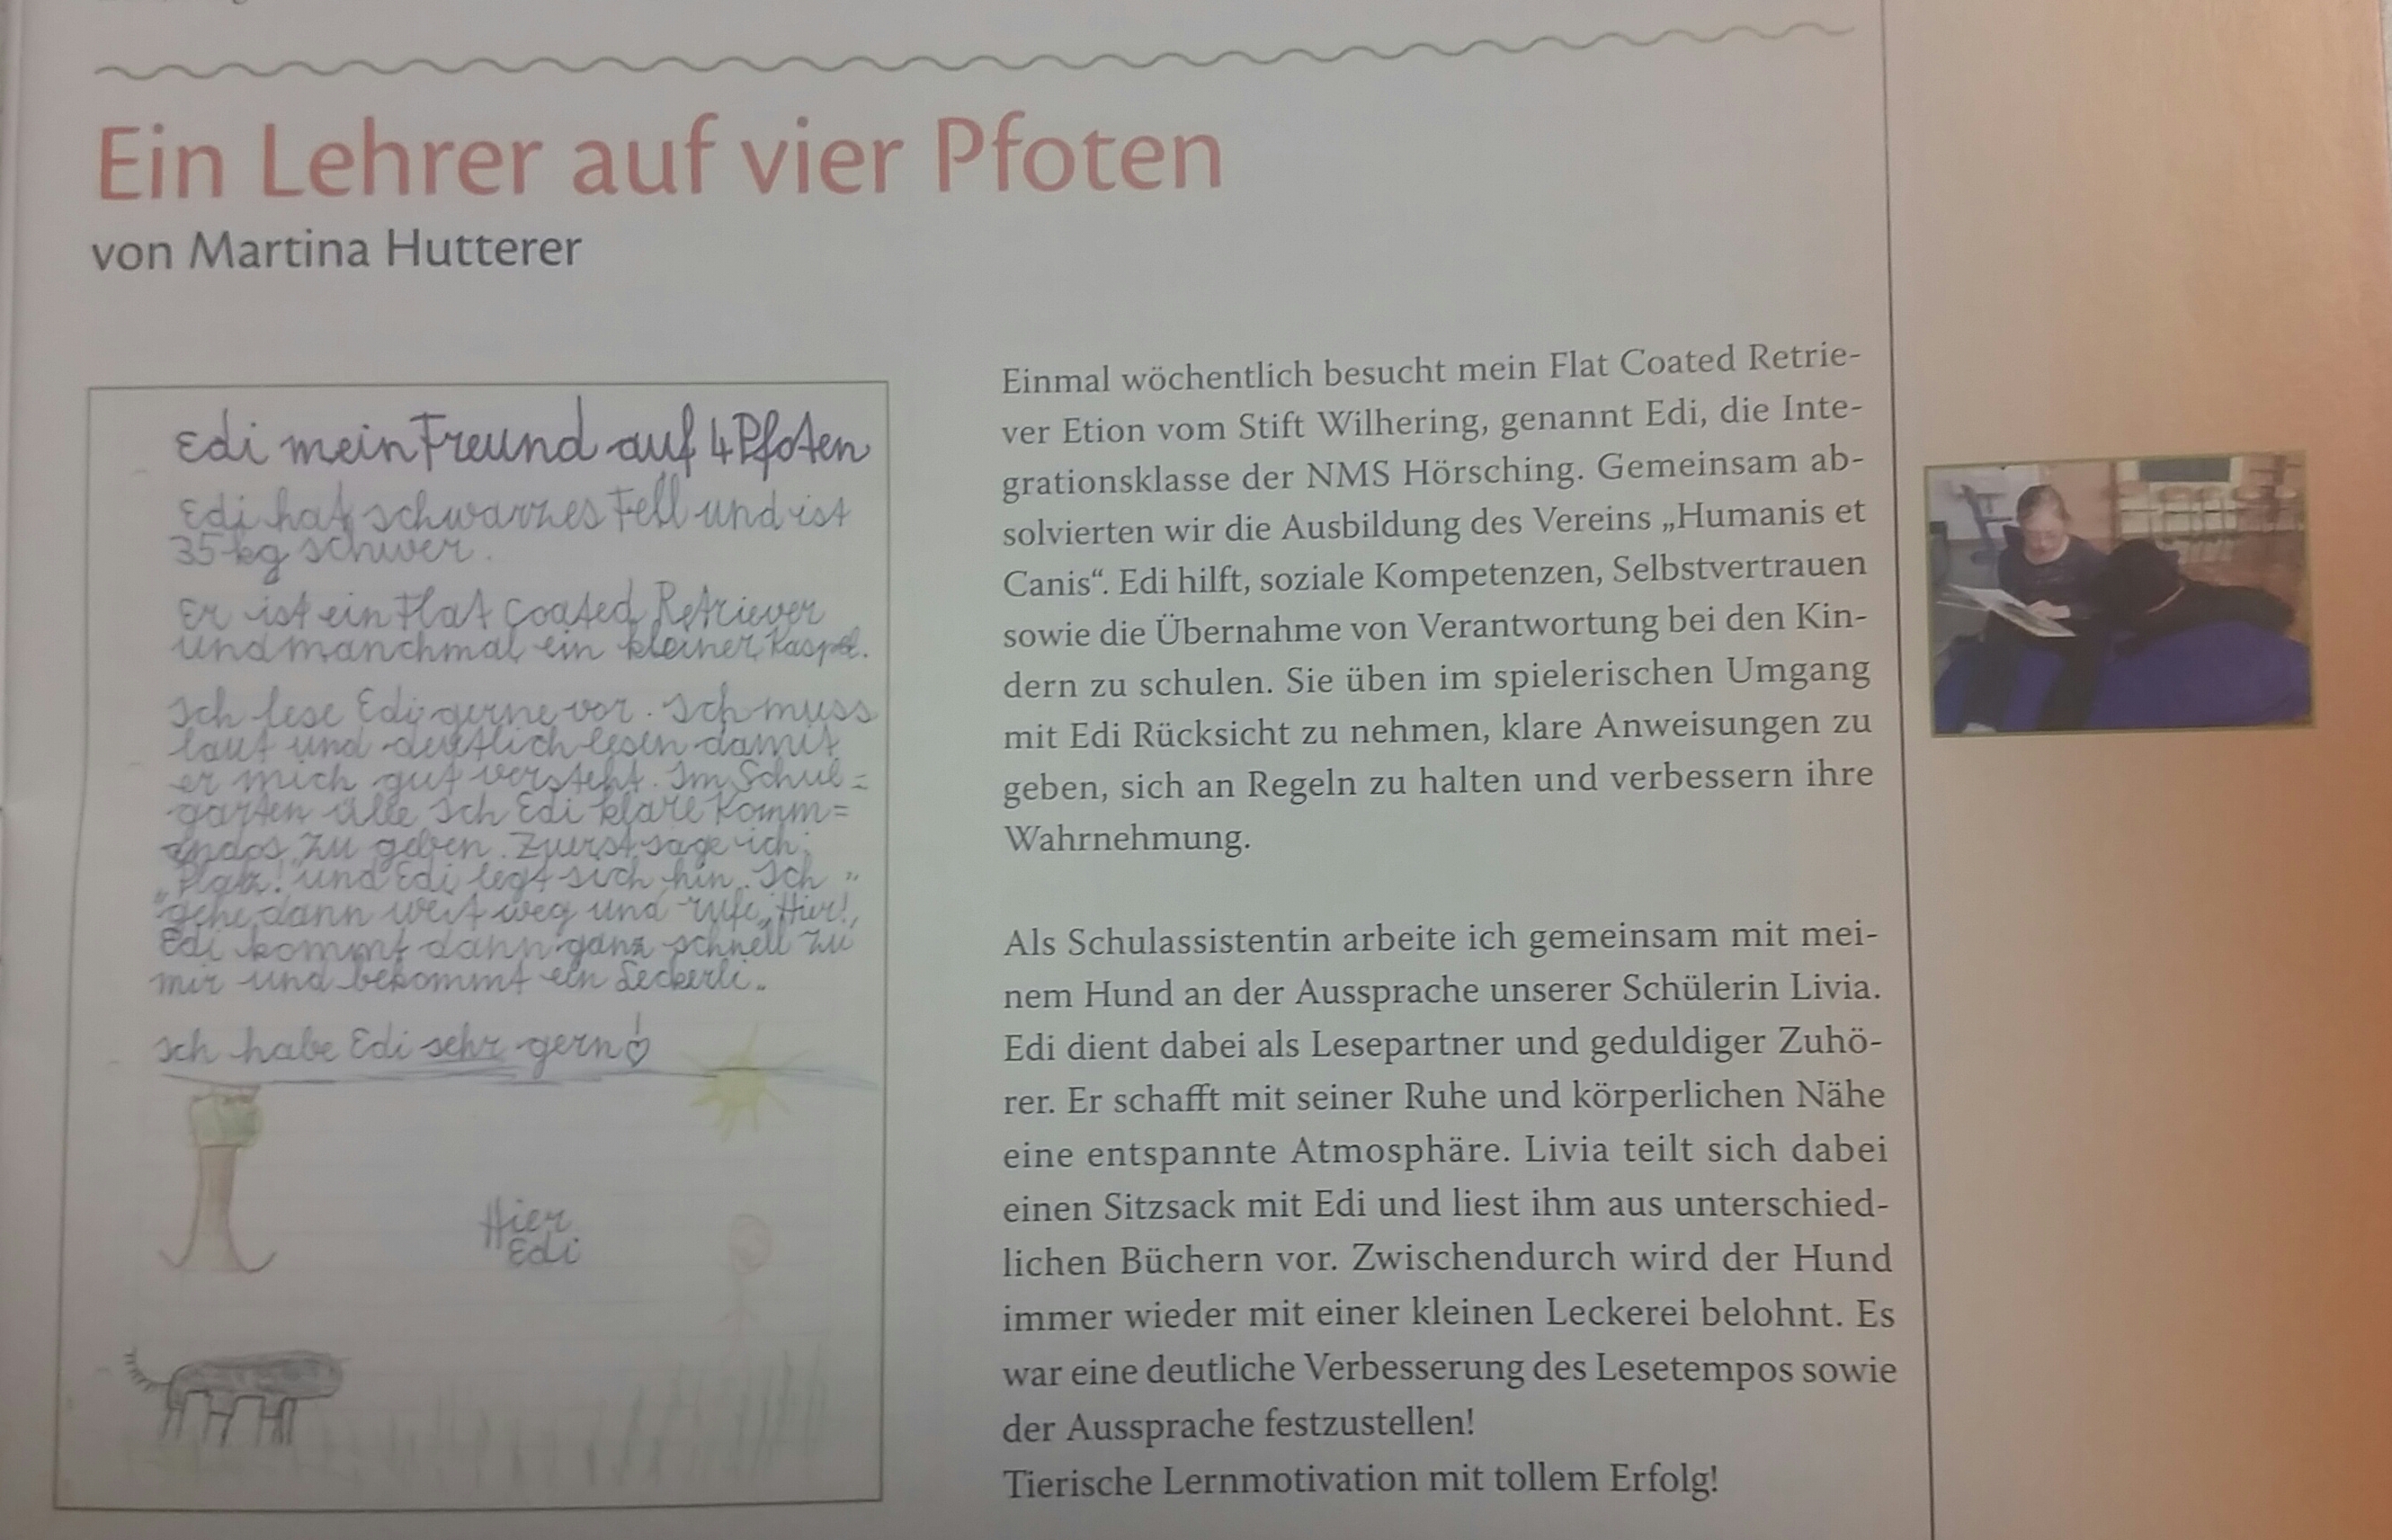 Ein Lehrer auf vier Pfoten
von Martina Hutterer
Edi mein Freund auf 4 Pfoten
Edi hat schwarzes Fell und ist
35 kg schwer.
Er ist ein Flat Coated Retriever
und manchmal ein kleiner Kasperl.
Ich lese Edi gerne vor. Ich muss
laut und deutlich lesen damit
er mich gut versteht. Im Schul=
garten übe ich Edi klare Komm=
andos zu geben. Zuerst sage ich:
„Platz!" und Edi legt sich hin. Ich
gehe dann weit weg und rufe „Hier!"
Edi kommt dann ganz schnell zu
mir und bekommt ein Leckerli.
Ich habe Edi sehr gern!
Hier
Edi
Einmal wöchentlich besucht mein Flat Coated Retrie-
ver Etion vom Stift Wilhering, genannt Edi, die Inte-
grationsklasse der NMS Hörsching. Gemeinsam ab-
solvierten wir die Ausbildung des Vereins „Humanis et
Canis“. Edi hilft, soziale Kompetenzen, Selbstvertrauen
sowie die Übernahme von Verantwortung bei den Kin-
dern zu schulen. Sie üben im spielerischen Umgang
mit Edi Rücksicht zu nehmen, klare Anweisungen zu
geben, sich an Regeln zu halten und verbessern ihre
Wahrnehmung.
Als Schulassistentin arbeite ich gemeinsam mit mei-
nem Hund an der Aussprache unserer Schülerin Livia.
Edi dient dabei als Lesepartner und geduldiger Zuhö-
rer. Er schafft mit seiner Ruhe und körperlichen Nähe
eine entspannte Atmosphäre. Livia teilt sich dabei
einen Sitzsack mit Edi und liest ihm aus unterschied-
lichen Büchern vor. Zwischendurch wird der Hund
immer wieder mit einer kleinen Leckerei belohnt. Es
war eine deutliche Verbesserung des Lesetempos sowie
der Aussprache festzustellen!
Tierische Lernmotivation mit tollem Erfolg!